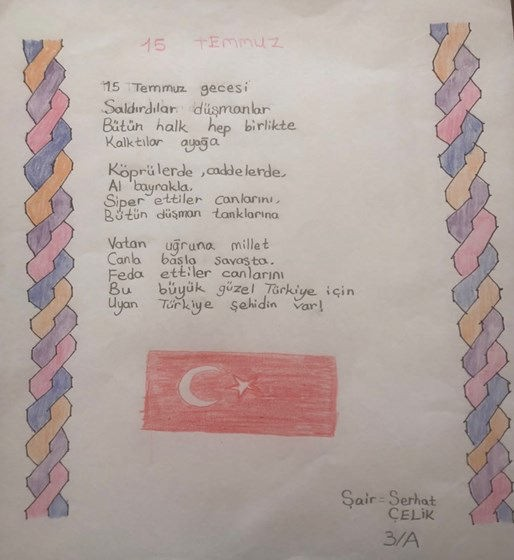 15 TEMMUZ
15 Temmuz gecesi
Saldırdılar düşmanlar
Bütün halk hep birlikte
Kalktılar ayağa
Köprülerde, caddelerde,
Al bayrakla,
Siper ettiler canlarını,
Bütün düşman tanklarına
Vatan uğruna millet
Canla başla savaşta.
Feda ettiler canlarını
Bu büyük güzel Türkiye için
Uyan Türkiye şehidin var!
Şair = Serhat
ÇELİK
3/A